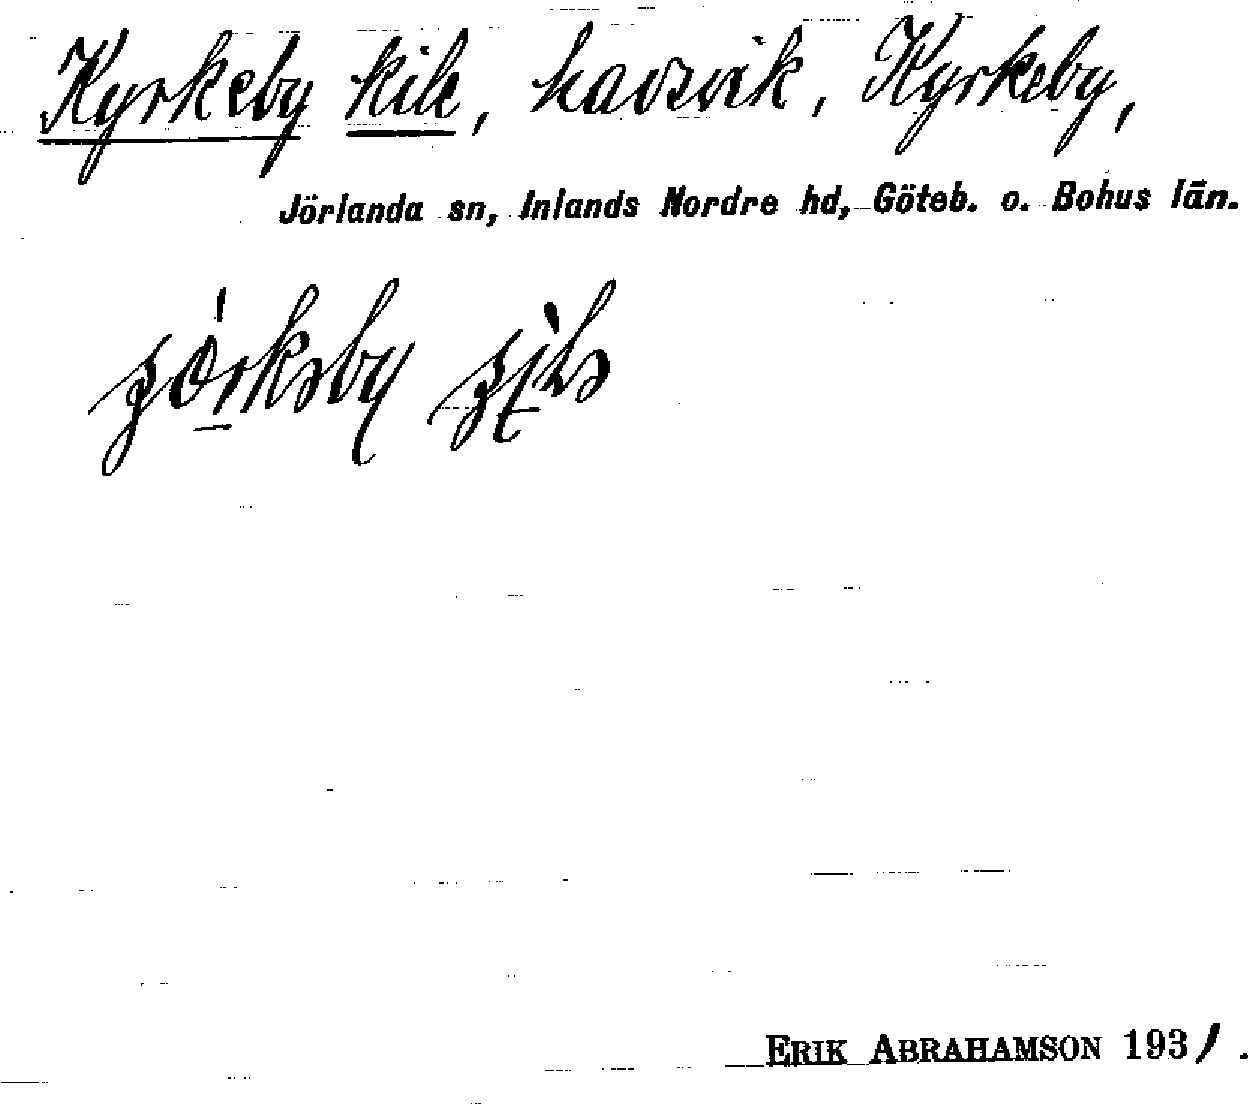 Kyrkeby kile, havsvik, Kyrkeby,
Jörlanda sn, Inlands Nordre hd, Göteb. o. Bohus län.
ERIK ABRAHAMSON 1931.